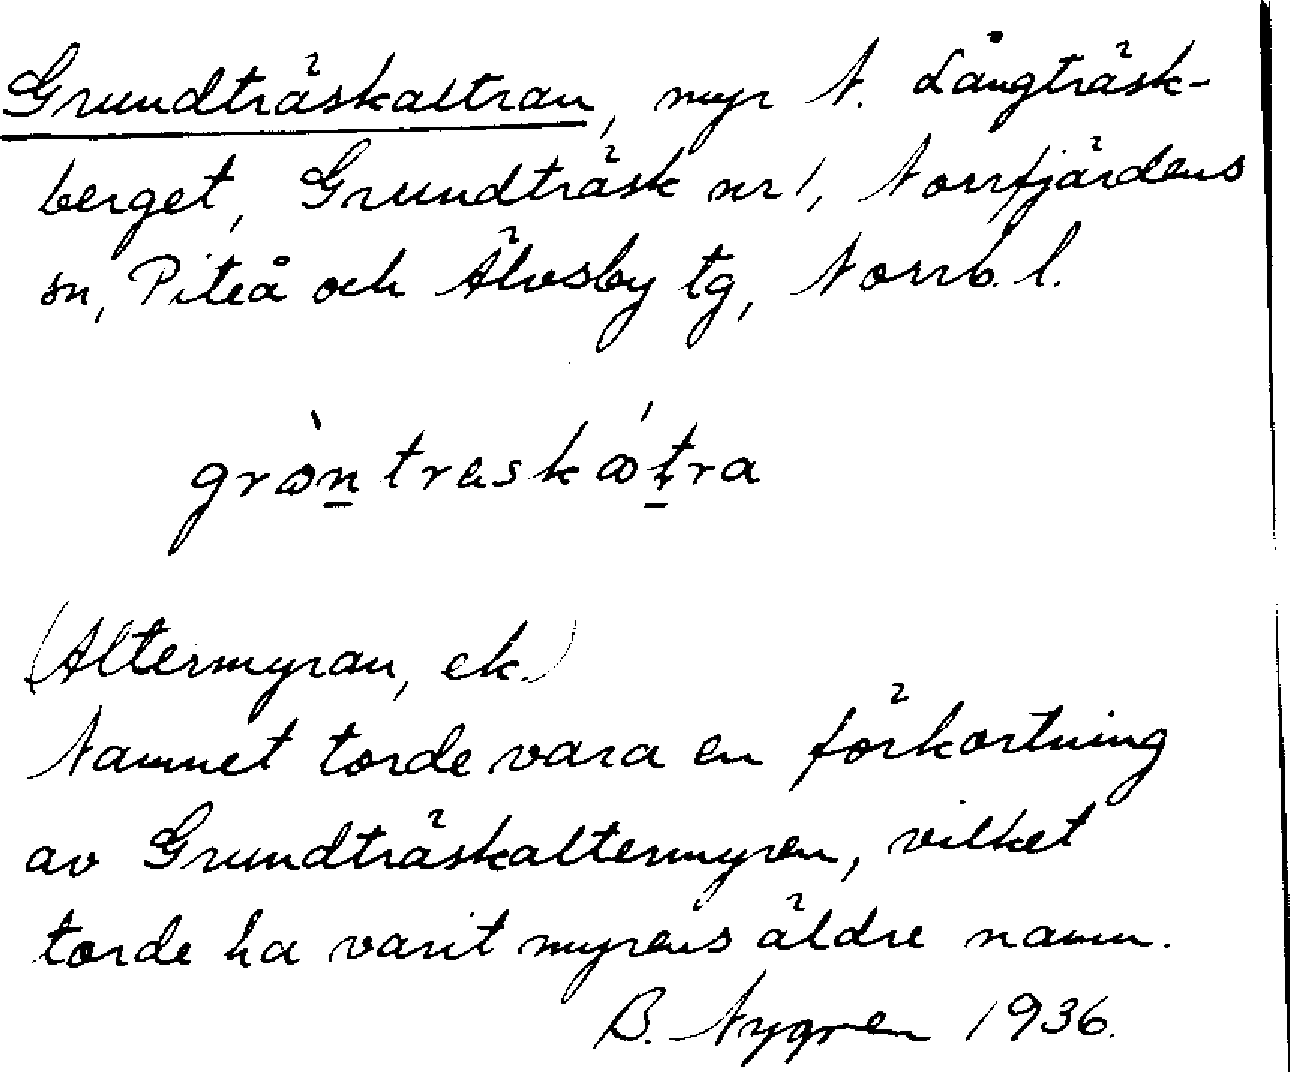 Grundträskaltran, myr N. Långträsk-
berget, Grundträsk nr 1, Norrfjärdens
sn, Piteå och Älvsby tg, Norrb. l.
grɷ̀n̲treskɷ́t̲ra
(Altermyran, ek.)
Namnet torde vara en förkortning
av Grundträskaltermyren, vilket
torde ha varit myrens äldre namn.
B. Nygren 1936.